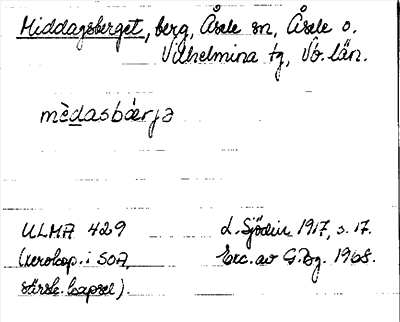 Middagsberget, berg, Åsele sn, Åsele o.
Vilhelmina tg, Vb. län.
mèdasbærjə
ULMA 429
(xerokop. i SOA,
särsk. kapsel).
L. Sjödin 1917, s. 17.
Exc. av G. Bg. 1968.